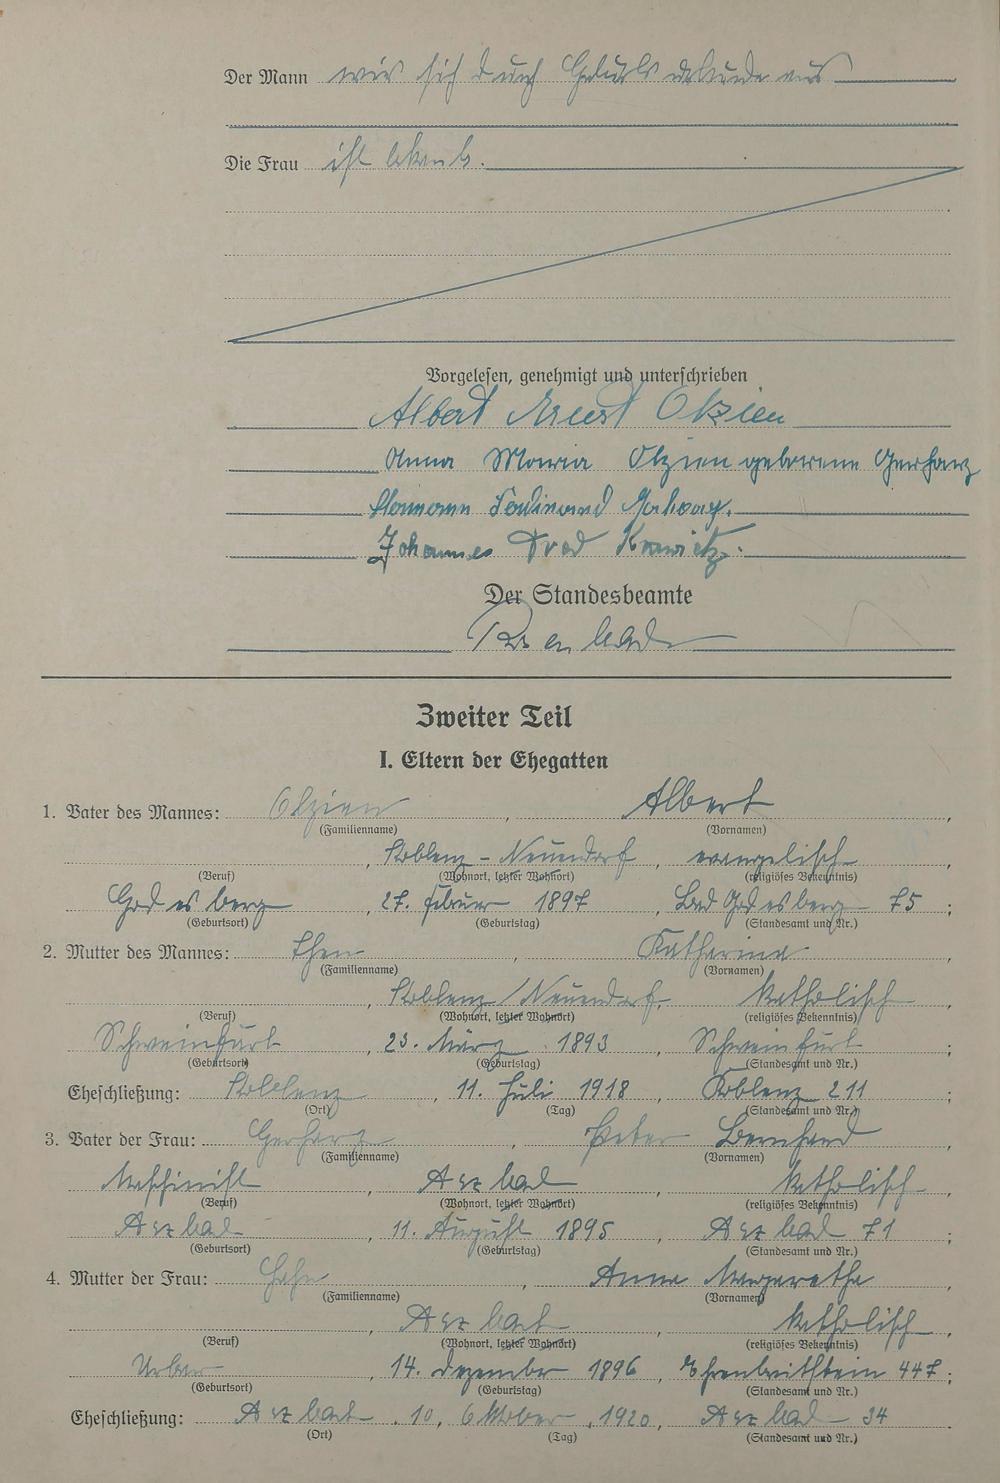 Der Mann wies sich durch Geburtsurkunde aus
Die Frau ist bekannt.
Vorgelesen, genehmigt und unterschrieben
Albert Ernst Olzien
Anna Maria Olzien geborene Gerharz
Hermann Ferdinand
Johannes Krawietz.
Der Standesbeamte
Zweiter Teil
I. Eltern der Ehegatten
1. Vater des Mannes: Olzien, Albert,
(Familienname) (Vornamen)
, Koblenz-Neuendorf, evangelisch,
(Beruf) (Wohnort, letzter Wohnort) (religiöses Bekenntnis)
Godesberg, 27. Februar 1897, Bad Godesberg 75;
(Geburtsort) (Geburtstag) (Standesamt und Nr.)
2. Mutter des Mannes: Then, Katharina,
(Familienname) (Vornamen)
, Koblenz/Neuendorf, katholisch,
(Beruf) (Wohnort, letzter Wohnort) (religiöses Bekenntnis)
Schweinfurt, 23. März 1893, Schweinfurt;
(Geburtsort) (Geburtstag) (Standesamt und Nr.)
Eheschließung: Koblenz, 11. Juli 1918, Koblenz 211;
(Ort) (Tag) (Standesamt und Nr.)
3. Vater der Frau: Gerharz, Peter Bernhard,
(Familienname) (Vornamen)
Maschinist, Arzbach, katholisch,
(Beruf) (Wohnort, letzter Wohnort) (religiöses Bekenntnis)
Arzbach, 11. August 1895, Arzbach 71;
(Geburtsort) (Geburtstag) (Standesamt und Nr.)
4. Mutter der Frau: Hehn, Anna Margaretha,
(Familienname) (Vornamen)
, Arzbach, katholisch,
(Beruf) (Wohnort, letzter Wohnort) (religiöses Bekenntnis)
Urbar, 14. Dezember 1896, Ehrenbreitstein 447;
(Geburtsort) (Geburtstag) (Standesamt und Nr.)
Eheschließung: Arzbach, 10. Oktober 1920, Arzbach 34
(Ort) (Tag) (Standesamt und Nr.)